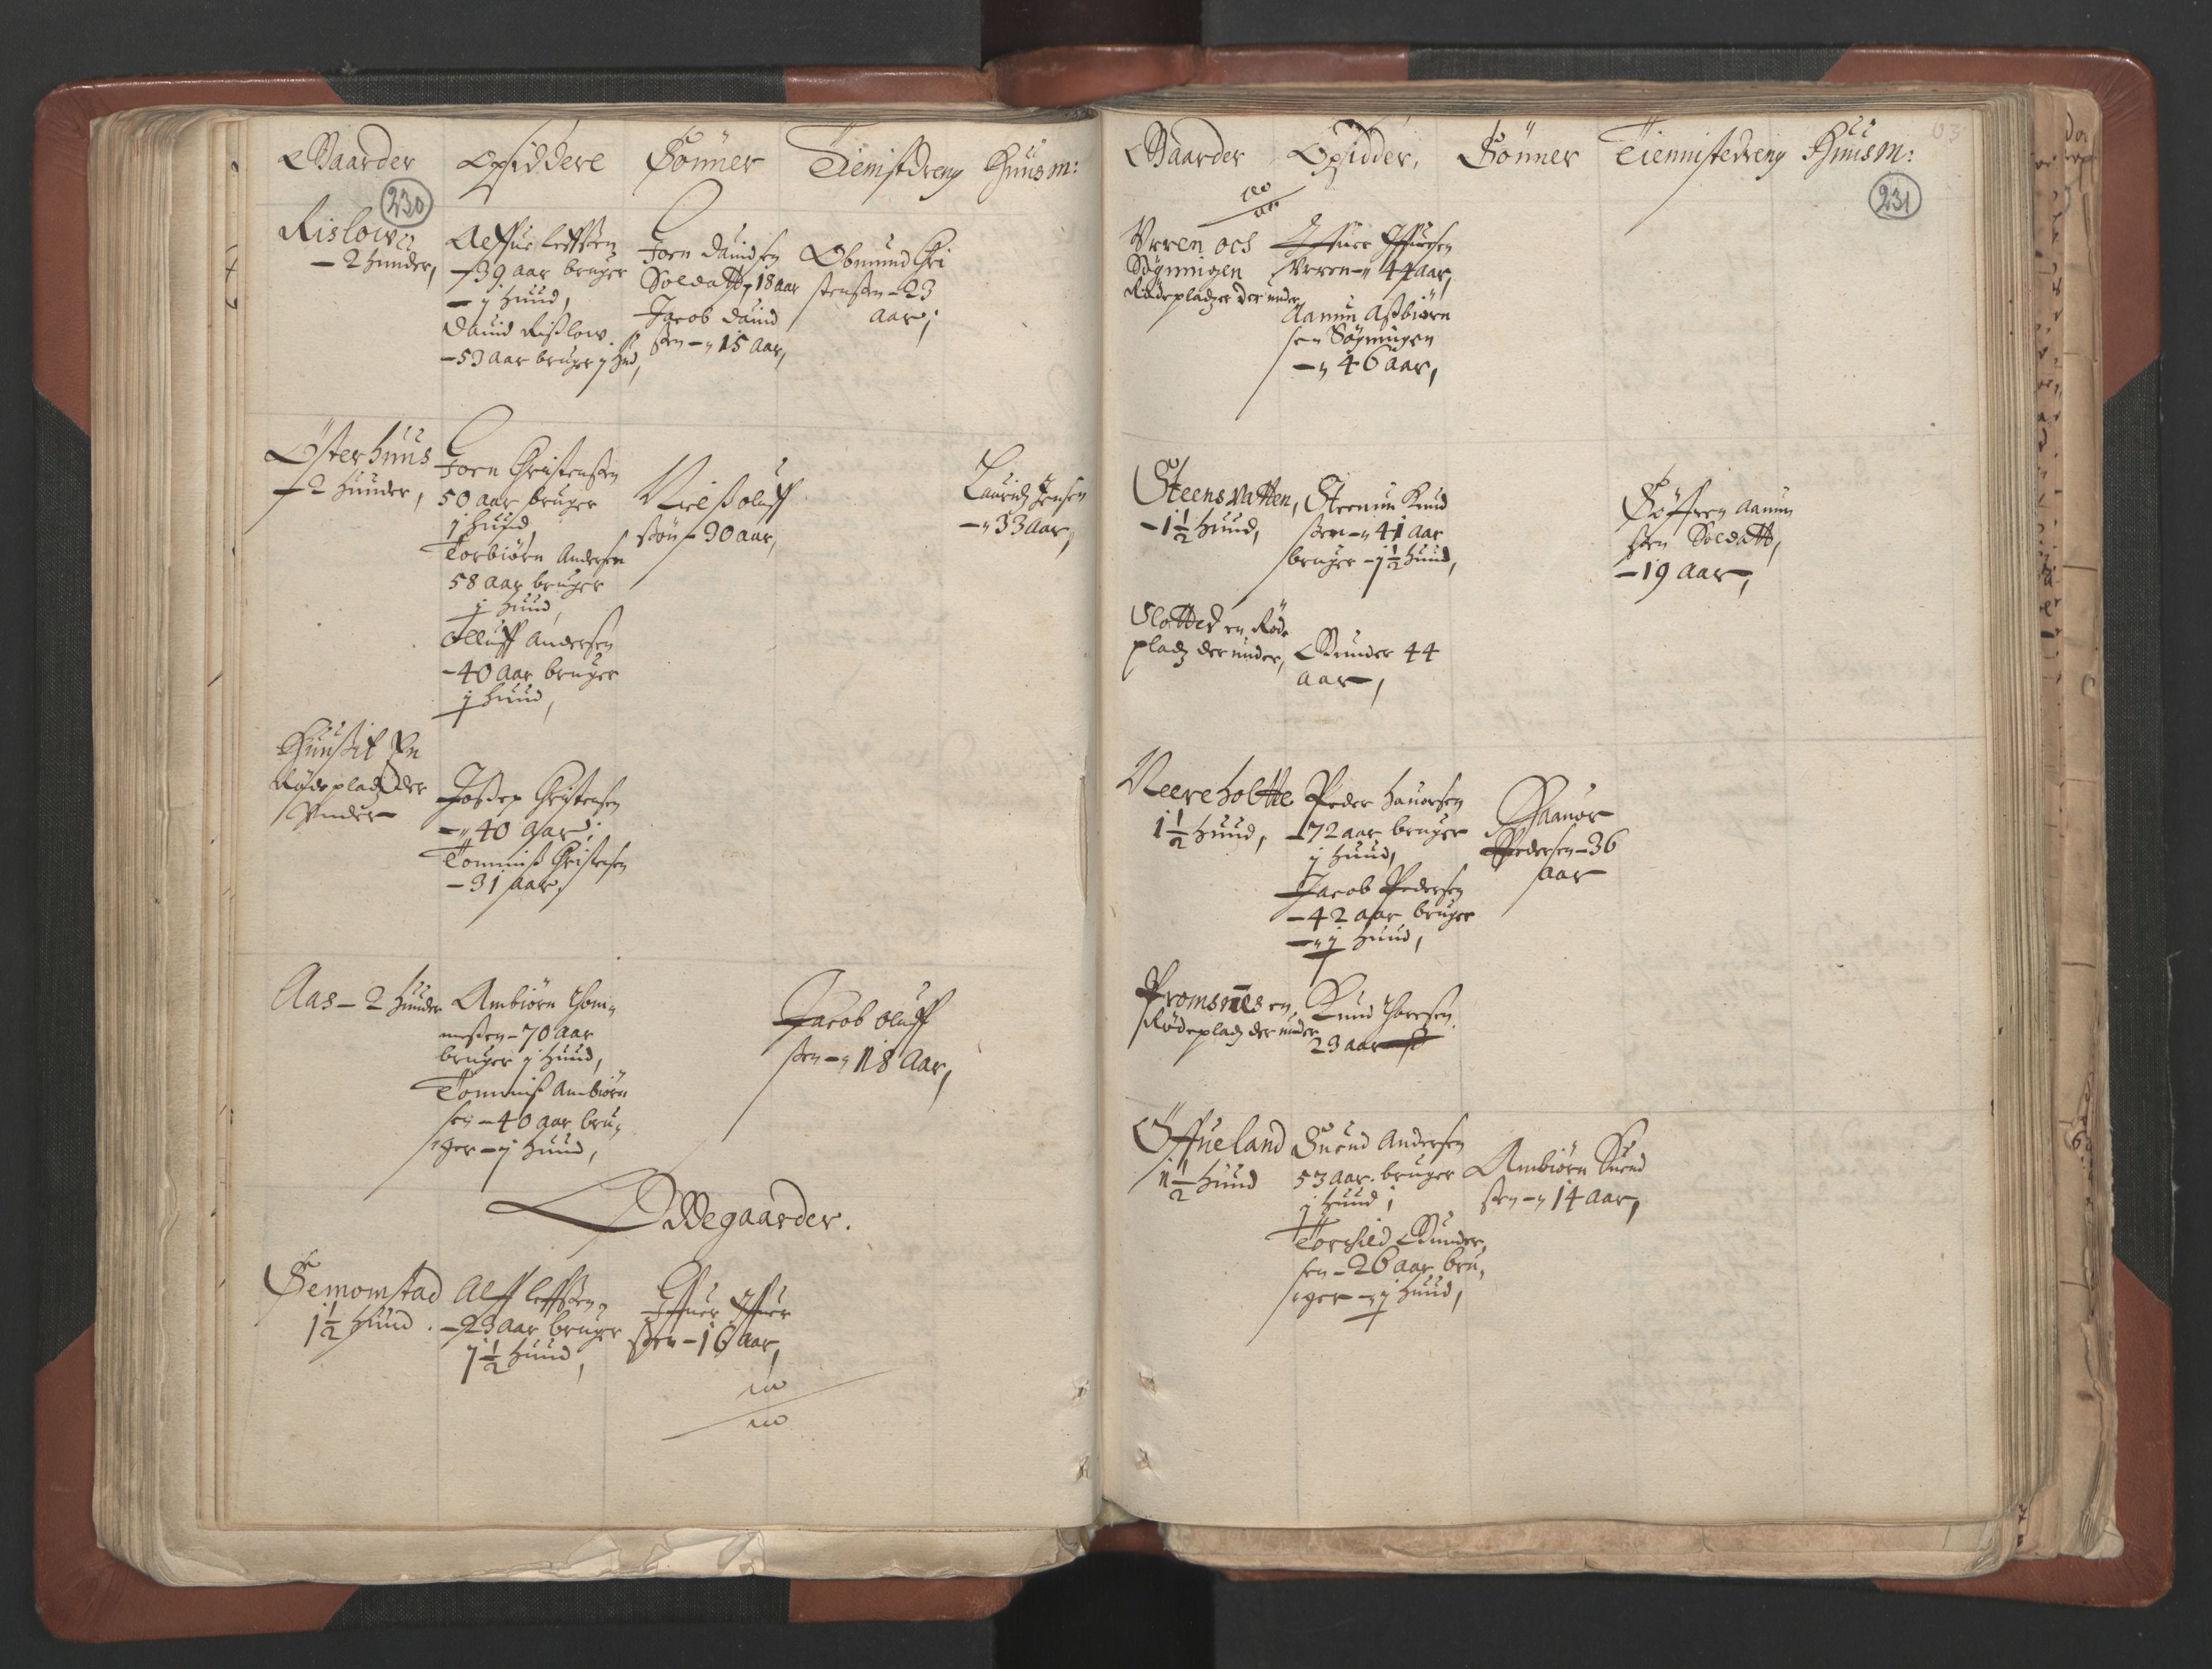 Gaarder Opsiddere Sönner Tienistdreng Huusm:
230
Rislow
– 2 hunder,
Alffue Leffsen
– 39 aar bruger
– j huud,
Dauid Rislow
– 53 aar bruger j hud,
Joen Dauidsen
Soldatt, 18 aar
Jacob Dauid
sen – 15 aar,
Obmund Chri
stensen – 23
aar;
Österhuus
– 2 hunder,
Joen Christensen
50 aar bruger
j huud,
Torbiörn Andersen
58 aar bruger
j huud,
Olluff Andersen
– 40 aar bruger
j huud,
Nielß Oluff
sön – 30 aar,
Lauridz Jensen
– 33 aar,
En
Rödepladz der
Vnder
Joßep Christensen
– 40 aar;
Tommiß Christensen
– 31 aar,
Aas – 2 hunder
Ambiörn Thom-
messen – 70 aar
bruger j huud,
Tommiß Ambiörn
sen – 40 aar bru-
ger – j huud,
Jacob Oluff
sen – 18 aar,
Ödegaarder.
Semomstad
1½ huud.
Alff Leffsen,
– 23 aar bruger
1½ huud,
Iffuer Iffuer
sen – 16 aar,
Gaarder Opsidder, Sönner Tiennistedreng Huusm:
231
Vrren och
Söynnigen
Rödepladzer der under,
Iffuer Iffuersen
Vrren – 44 aar,
Aamun Aßbiörn
sen Söynnigen
– 46 aar,
Steensvatten,
– 1½ huud,
Steenun Knud
sen – 41 aar
bruger – 1½ huud,
Söffren Aamun
sen Soldatt,
– 19 aar,
Slotted en Röde
pladz der under,
Gunder 44
aar,
Neereholtte
1½ huud,
Peder Hauorsen
– 72 aar bruger
j huud,
Jacob Pedersen
– 42 aar bruger
– j huud,
Haauor
Pedersen – 36
aar
Promsnes en
Rödepladz der under
Knud Thoresen
23 aar
Öffueland
1½ huud
Suend Andersen
53 aar bruger
j huud;
Torchild Gunder
sen – 26 aar bru-
ger – j huud,
Ambiörn Suend
sen – 14 aar,